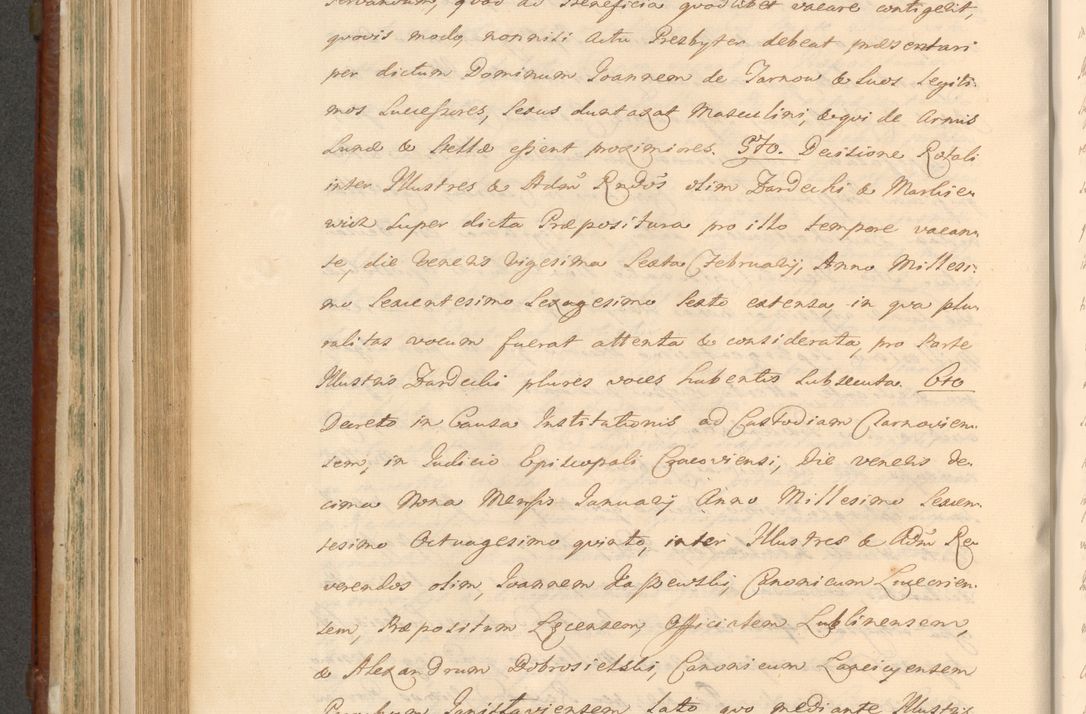 servandum, quod ad Beneficia quodlibet vacare contigerit,
quovis modo, nonnisi Actu Presbyter debeat præsentari
per dictum Dominum Joannem de Tarnow & suos legiti-
mos Successores, Sexus duntaxat Masculini, & qui de Armis
Lunæ & Stellæ essent proximiores. 5to. Decisione Rotali
inter Illustres & Adm̃ Rndõs olim Zardecki & Markie-
wicz super dicta Præpositura pro illo tempore vacan-
te, die Veneris Vigesima Sexta Februarij, Anno Millesi-
mo Sexcentesimo Sexagesimo Sexto extensa, in qva plu-
ralitas vocum fuerat attenta & considerata, pro Parte
Illustris Zardecki plures voces habentis subsecuta. 6to
Decreto in Causa Institutionis ad Custodiam Tarnovien-
sem, in Judicio Episcopali Cracoviensi, Die Veneris de-
cima Nona Mensis Januarij Anno Millesimo Sexcen-
tesimo Octuagesimo quinto, inter Illustres & Adm̃ Re-
verendos olim, Joannem Canonicum Luceorien-
sem, Præpositum Officialem Lublinensem,
& Alexandrum Dobrosielski, Canonicum
lato quo mediante Illustris